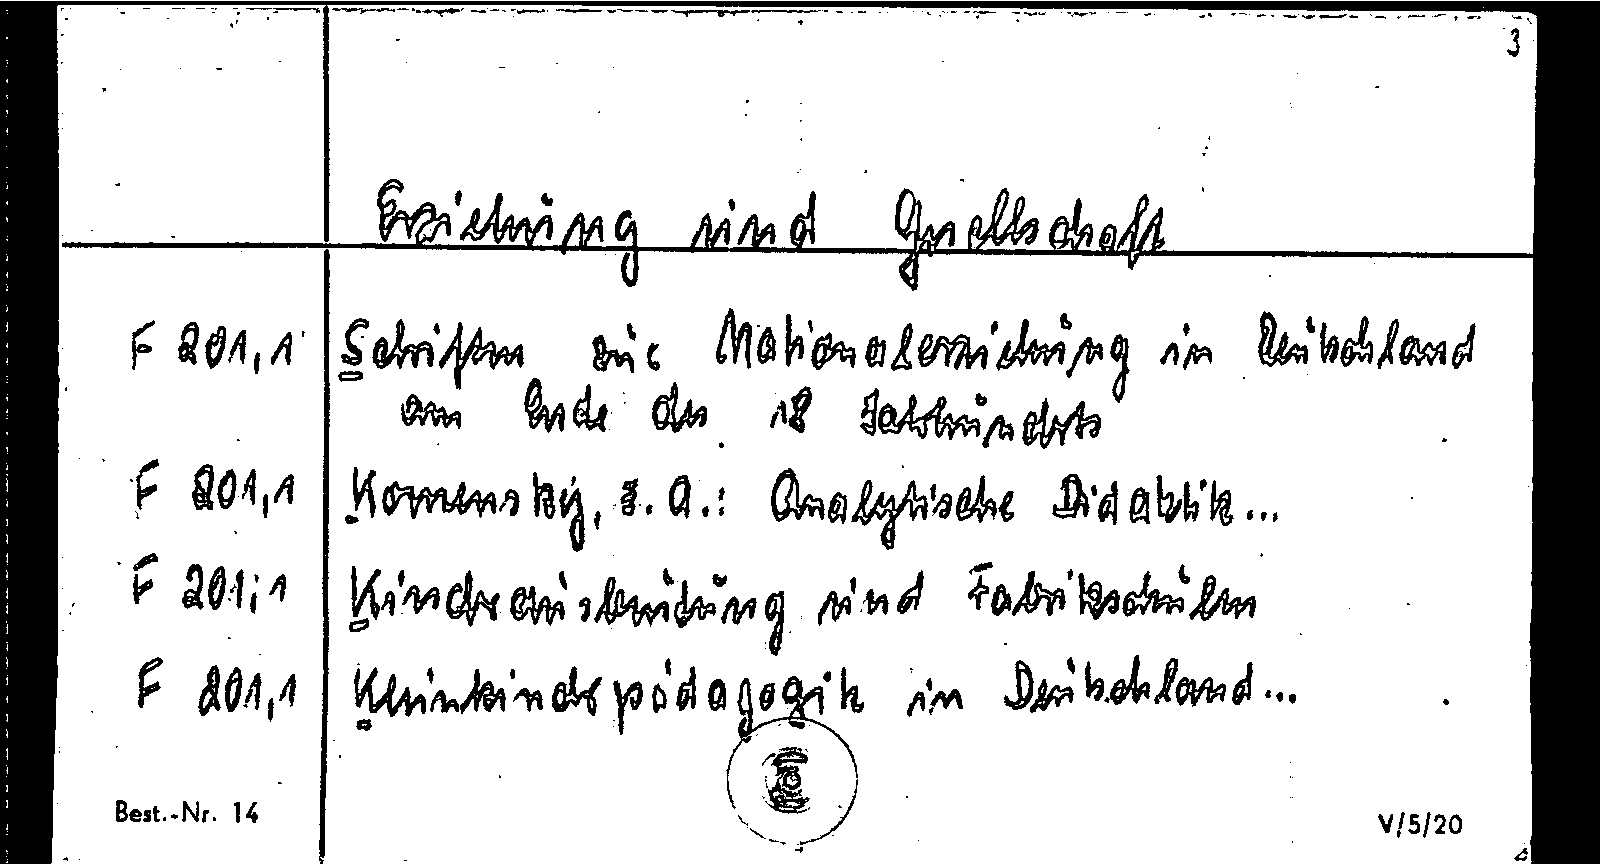 3
Erziehung und Gesellschaft
F 201,1 Schriften zur Nationalerziehung in Deutschland
am Ende des 18 Jahrhunderts
F 201,1 Komensky, J. A.: Analytische Didaktik...
F 201,1 Kinderausbeutung und Fabrikschulen
F 201,1 Kleinkindpädagogik in Deutschland...
Best.-Nr. 14
V/5/20